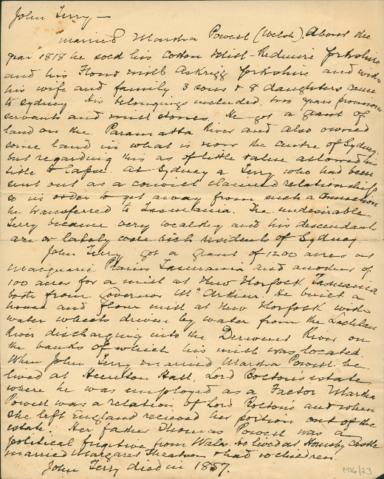 John Terry—
married Martha Powell (Welsh). About the
year 1818 he sold his Cotton Mill - Redmire Yorkshire
and his Flour mill Askrigg Yorkshire and with
his wife and family 3 sons & 8 daughters came
to Sydney his belongings included two years provisions
servants and mill stones. He got a grant of
land on the Paramatta River and also owned
some land in what is now the centre of Sydney
but regarding this as of little value allowed
title to lapse. At Sydney a Terry who had been
sent out as a convict claimed relationship
so in order to get away from such a connection
he transferred to Tasmania. The undesirable
Terry became very wealthy and his descendants
are or lately were rich residents of Sydney
John Terry got a grant of 1200 acres at
Macquarie Plains Tasmania and another of
100 acres for a mill at New Norfolk Tasmania
both from Governor McArthur. He built a
house and flour mill at New Norfolk with
water wheels driven by water from the Lachlan
River discharging into the Derwent River on
the banks of which his mill was located
When John Terry married Martha Powell he
lived at Hall, Lord Bolton's estate
where he was employed as a Factor Martha
Powell was a relation of Lord Boltons and when
she left England received her portion out of the
estate. Her father Thomas Powell was a
political fugitive from Wales & lived at Hornby Castle
married Margaret & had 10 children
John Terry died in 1857.